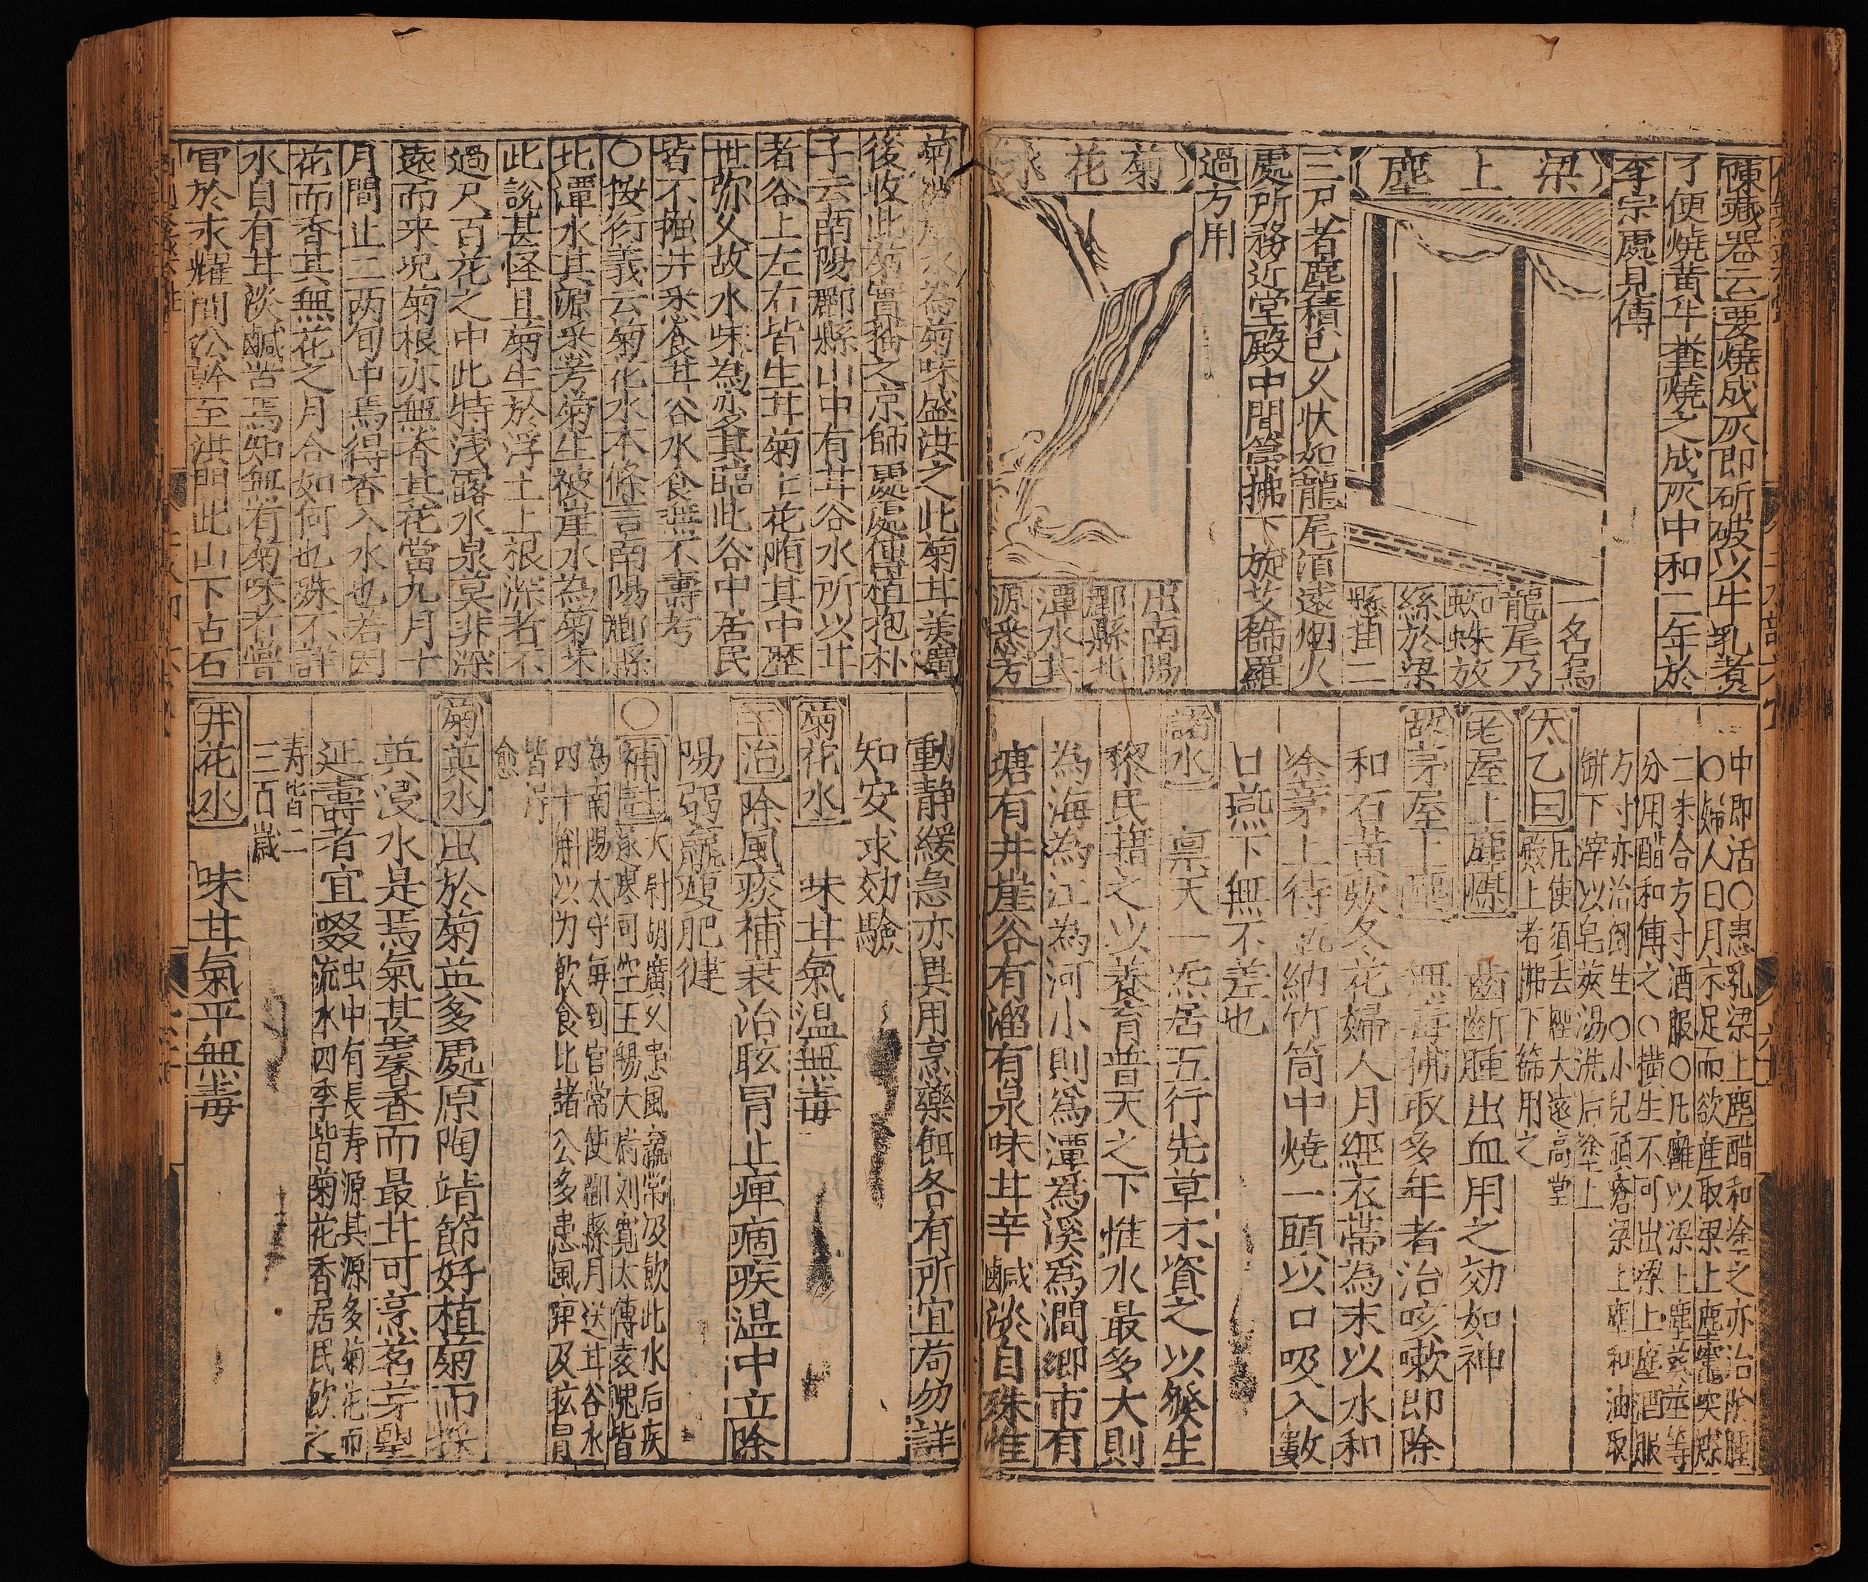 陳藏器云要燒成灰即斫破以牛乳煮
了便燒黃牛糞燒之成灰中和二年於
李宗處見傳
梁上塵
一名烏
龍尾乃
蜘蛛放
絲於梁
懸掛二
三尺者塵積已久狀如龍尾須遠烟火
處所務近堂殿中間篙拂下旋艾篩羅
過方用
菊花水
出南陽
酈縣北
潭水其
源悉芳
中即活〇患乳梁上塵醋和塗之亦治陰腫
〇婦人日月不足而欲產取梁上塵竈突煤
二味合方寸酒服〇凡癰以梁上塵葵莖等
分用醋和傅之〇橫生不可出梁上塵酒服
方寸亦治倒生〇小兒頭瘡梁上塵和油取
餅下滓以皂莢湯洗后塗上
太乙曰凡使須去煙大遠高堂
殿上者拂下篩用之
老屋上塵煤 齒斷腫出血用之効如神
故茅屋上塵 無毒拂取多年者治咳嗽即除
和石黃款冬花婦人月經衣帶為末以水和
塗茅上待乾納竹筒中燒一頭以口吸入數
口嚥下無不差也
諸水 禀天一炁居五行先草木資之以發生
黎民藉之以養育普天之下惟水最多大則
為海為江為河小則為潭為溪為澗鄉市有
塘有井崖谷有溜有泉味甘辛鹹淡自殊惟
菊被崖水為菊味盛洪之此菊甘美廣
後收此菊實播之京師處處傳植抱朴
子云南陽酈縣山中有甘谷水所以甘
者谷上左右皆生甘菊上花墮其中歷
世弥久故水味為變其臨此谷中居民
皆不掘井悉食甘谷水食無不壽考
〇按衍義云菊花水本條言南陽酈縣
北潭水其源悉芳菊生被崖水為菊味
此說甚怪且菊生於浮土上根深者不
過尺百花之中此特淺露水泉莫非深
遠而来况菊根亦無香其花當九月十
月間止二两旬中焉得香入水也若因
花而香其無花之月合如何也殊不詳
水自有甘淡鹹苦焉知無有菊味者嘗
官於永耀間沿幹至洪門北山下古石
動静緩急亦異用烹藥餌各有所宜苟勿詳
知安求効驗
菊花水 味甘氣温無毒
主治除風痰補衰治眩冒止痺痼疾温中立除
陽弱羸瘦肥健
〇補註太尉胡廣久患風羸常汲飲此水后疾
遂瘳司空王暢太尉刘寬太傅袁隗皆
為南陽太守每到官常使酈縣月送甘谷水
四十斛以为飲食比諸公多患風痺及眩冒
皆得
愈
菊英水出於菊英多處原陶靖節好植菊而採
英浸水是焉氣甚馨香而最甘可烹茗芽望
延壽者宜啜流水四季皆菊花香居民飲之
蛊中有長寿源其源多菊花而
寿皆二
三百歲
井花水 味甘氣平無毒